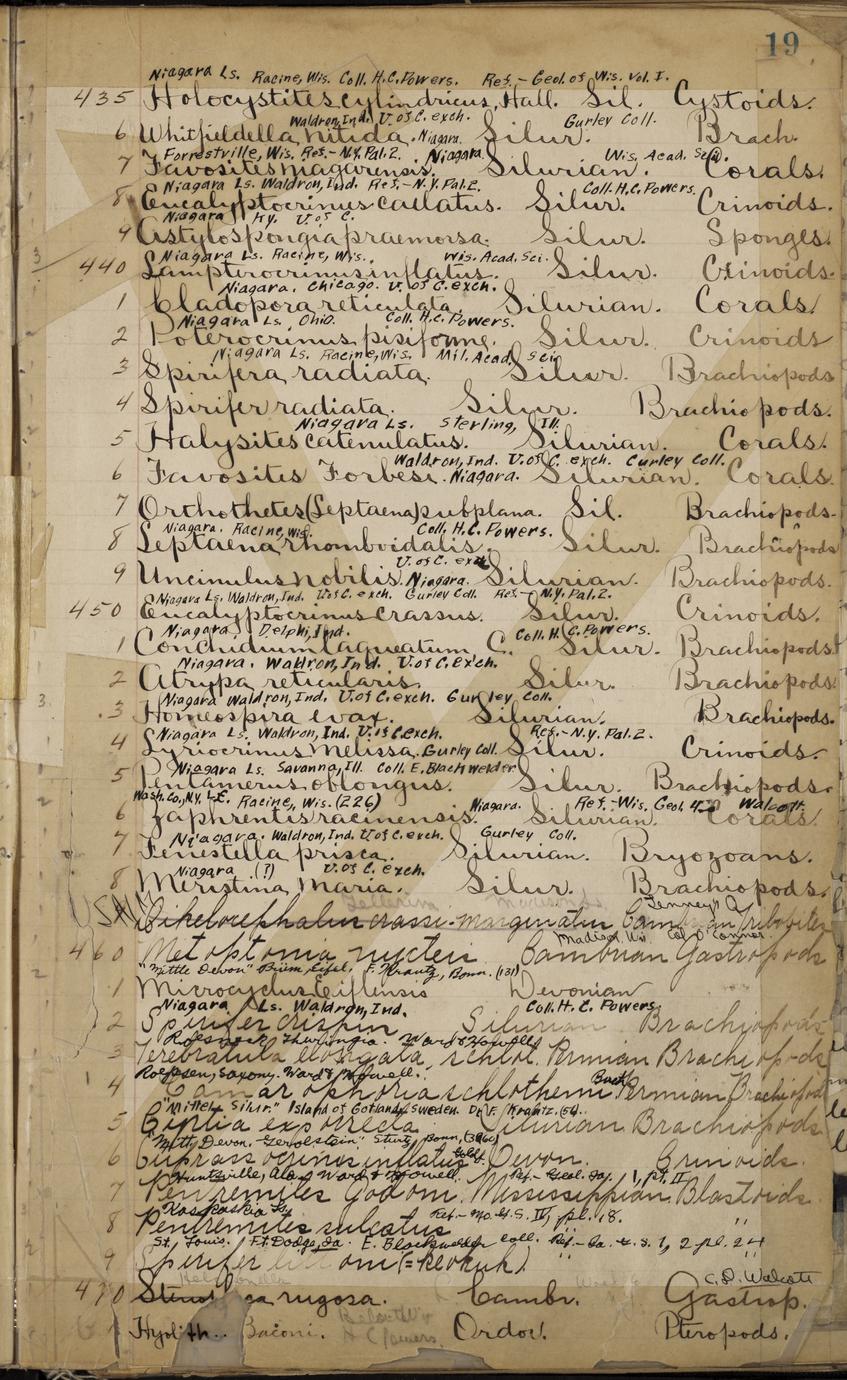 19
Niagara Ls. Racine, Wis. Coll. H.C. Powers. Ref. - Geol. of Wis. Vol. I.
435 Holocystites cylindricus, Hall. Sil. Cystoids.
Waldron, Ind. U. of C. exch. Gurley Coll.
6 Whitfieldella nitida. Niagara. Silur. Brach.
Forrestville, Wis. Ref. - N.Y. Pal. 2. Niagara. Wis. Acad. Sci.
7 Favosites niagarensis. Silurian. Corals.
Niagara Ls. Waldron, Ind. Ref. - N.Y. Pal. 2. Coll. H.C. Powers.
8 Eucalyptocrinus caelatus. Silur. Crinoids.
Niagara Ky. U. of C.
9 Astylospongia praemorsa. Silur. Sponges.
Niagara Ls. Racine, Wis. Wis. Acad. Sci.
3 440 Lampterocrinus inflatus. Silur. Crinoids.
Niagara. Chicago. U. of C. exch.
1 Cladopora reticulata. Silurian. Corals.
Niagara Ls. Ohio. Coll. H.C. Powers.
2 Poterocrinus pisiforme. Silur. Crinoids
Niagara Ls. Racine, Wis. Mil. Acad. Sci.
3 Spirifera radiata. Silur. Brachiopods
4 Spirifer radiata. Silur. Brachiopods.
Niagara Ls. Sterling, Ill.
5 Halysites catenulatus. Silurian. Corals.
Waldron, Ind. U. of C. exch. Gurley Coll.
6 Favosites Forbesi. Niagara. Silurian. Corals.
7 Orthothetes (Leptaena) subplana. Sil. Brachiopods.
Niagara. Racine, Wis. Coll. H.C. Powers.
8 Leptaena rhomboidalis. Silur. Brachiopods
U. of C. exch.
9 Uncinulus nobilis. Niagara. Silurian. Brachiopods.
Niagara Ls. Waldron, Ind. U. of C. exch. Gurley Coll. Ref. - N.Y. Pal. 2.
450 Eucalyptocrinus crassus. Silur. Crinoids.
Niagara. Delphi, Ind. Coll. H.C. Powers.
1 Conchidium laqueatum, C. Silur. Brachiopods.
Niagara. Waldron, Ind. U. of C. exch.
2 Atrypa reticularis. Silur. Brachiopods.
Niagara Waldron, Ind. U. of C. exch. Gurley Coll.
3 3 Homeospira evax. Silurian. Brachiopods.
Niagara Ls. Waldron, Ind. U. of C. exch. Ref. - N.Y. Pal. 2.
4 Lyriocrinus melissa. Gurley Coll. Silur. Crinoids.
Niagara Ls. Savanna, Ill. Coll. E. Blackwelder
5 Pentamerus oblongus. Silur. Brachiopods.
Wash. Co., N.Y. Racine, Wis. (226) Niagara. Ref. - Wis. Geol. 4 Walcott.
6 Zaphrentis racinensis. Silurian. Corals.
Niagara. Waldron, Ind. U. of C. exch. Gurley Coll.
7 Fenestella prisca. Silurian. Bryozoans.
Niagara (?) U. of C. exch.
8 Meristina Maria. Silur. Brachiopods.
USNM Dikelocephalus crassi-marginatus Cambrian Trilobites
Madison, Wis. Col. O'Connor
460 Metoptoma nycteis Cambrian Gastropods
"Mittle Devon" Eifel, F. Krantz, Bonn. (131)
1 Microcyclus Eiflensis Devonian
Niagara Ls. Waldron, Ind. Coll. H.C. Powers
2 Spirifer crispin Silurian Brachiopods
Thuringia. Ward & Howell
3 Terebratula elongata, schlot. Permian Brachiopods
Roepsen, Saxony. Ward & Howell.
4 Camarophoria schlothemi Buch Permian Brachiopod
"Mittel Silur." Island of Gotland, Sweden. Dr. F. Krantz.
5 exporrecta Silurian Brachiopods
"Mittl. Devon. - Gerolstein" Sturtz, Bonn,
6 Cupressocrinus inflatus Goldf. Devon. Crinoids.
Huntsville, Ala. Ward & Howell. Ref. - Geol. Ia. 1, pt. II
7 Pentremites Godoni. Mississippian Blastoids
Kaskaskia Ref. - Mo. G.S. II, pl. 18.
8 Pentremites sulcatus " "
St. Louis. Ft. Dodge, Ia. E. Blackwelder coll. Ref. - Ia. G.S. 1, 2 pl. 24
9 Spirifer (= keokuk) " "
C.D. Walcott
470 rugosa. Cambr. Gastrop.
1 Hyolith Baconi. Ordov. Pteropods.
Beloit Wis
H C Powers